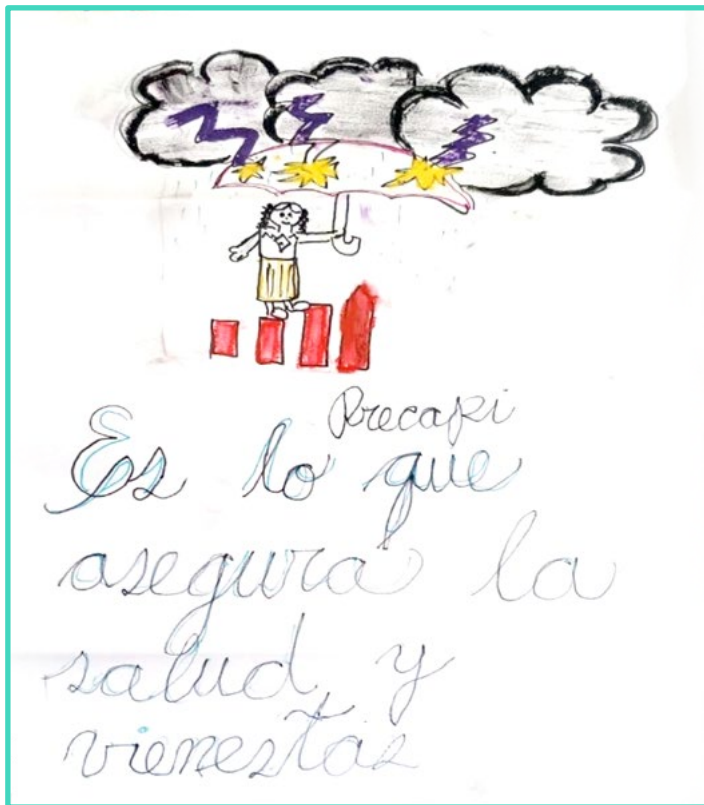 Precapi
Es lo que
asegura la
salud y
vienestar